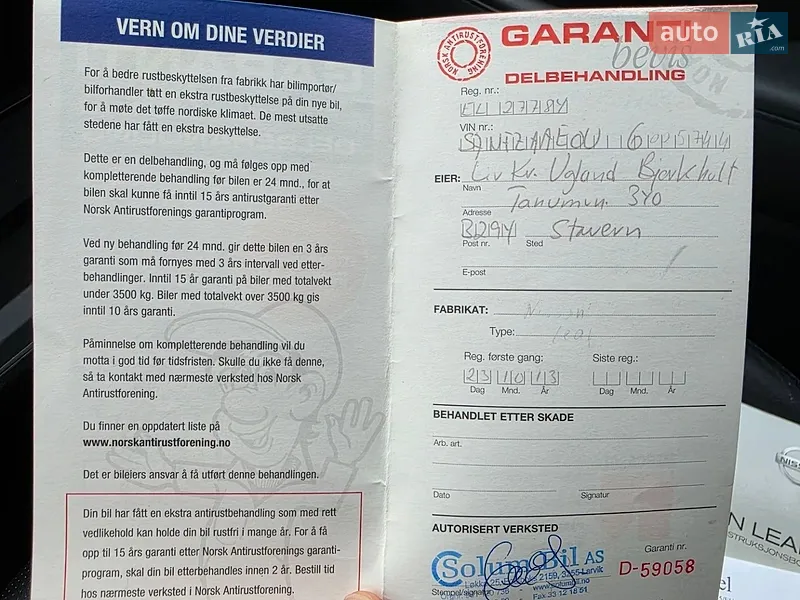 VERN OM DINE VERDIER
For å bedre rustbeskyttelsen fra fabrikk har bilimportør/
bilforhandler tatt en ekstra rustbeskyttelse på din nye bil,
for å møte det tøffe nordiske klimaet. De mest utsatte
stedene har fått en ekstra beskyttelse.
Dette er en delbehandling, og må følges opp med
kompletterende behandling før bilen er 24 mnd., for at
bilen skal kunne få inntil 15 års antirustgaranti etter
Norsk Antirustforenings garantiprogram.
Ved ny behandling før 24 mnd. gir dette bilen en 3 års
garanti som må fornyes med 3 års intervall ved etter-
behandlinger. Inntil 15 år garanti på biler med totalvekt
under 3500 kg. Biler med totalvekt over 3500 kg gis
inntil 10 års garanti.
Påminnelse om kompletterende behandling vil du
motta i god tid før tidsfristen. Skulle du ikke få denne,
så ta kontakt med nærmeste verksted hos Norsk
Antirustforening.
Du finner en oppdatert liste på
www.norskantirustforening.no
Det er bileiers ansvar å få utført denne behandlingen.
Din bil har fått en ekstra antirustbehandling som med rett
vedlikehold kan holde din bil rustfri i mange år. For å få
opp til 15 års garanti etter Norsk Antirustforenings garanti-
program, skal din bil etterbehandles innen 2 år. Bestill tid
hos nærmeste verksted i Norsk Antirustforening.
NORSK ANTIRUSTFORENING
GARANTI
bevis
auto RIA .com
DELBEHANDLING
Reg. nr.:
VIN nr.:
EIER: Liv Kr. Ugland Bjørkholt
Navn
Tanumvn. 370
Adresse
3294 Stavern
Post nr. Sted
E-post
FABRIKAT: Nissan
Type: Leaf
Reg. første gang: Siste reg.:
23 10 13
Dag Mnd. År Dag Mnd. År
BEHANDLET ETTER SKADE
Arb. art.
Dato Signatur
AUTORISERT VERKSTED
Solum Bil AS
Garanti nr.
D-59058
2159, 3255 Larvik
www.solumbil.no
Stempel/signatur
Fax 33 12 18 51
NISS
N LEA